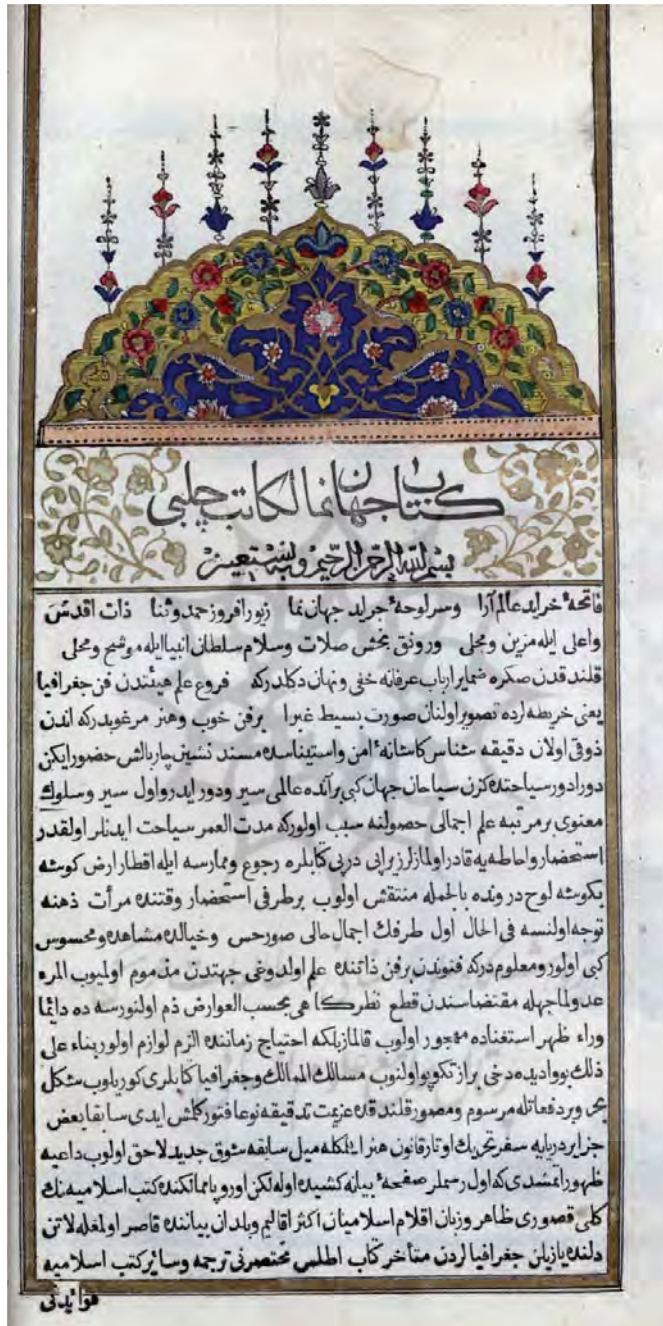 كتاب جهان نما لكاتب چلبی
بسم الله الرحمن الرحيم وبه نستعين
فاتحهٔ خرايد عالم آرا وسرلوحهٔ جرايد جهان نما زيور افروز حمد وثنا ذات اقدس
واعلی ايله مزين ومجلی ورونق بخش صلات وسلام سلطان انبيا ايله موشح ومحلی
قلندقدن صكره ضماير ارباب عرفانه خفی ونهان دكلدركه فروع علم هيئتدن فن جغرافيا
يعنی خريطه لرده تصوير اولنان صورت بسيط غبرا برفن خوب وهنر مرغوبدركه اندن
ذوقی اولان دقيقه شناس كاشانهٔ امن واستيناسده مسند نشين چاربالش حضور ايكن
دورادور سياحتده كزن سياحان جهان كبی برآنده عالمی سير ودور ايدر واول سير وسلوك
معنوی برمرتبه علم اجمالی حصولنه سبب اولوركه مدت العمر سياحت ايدنلر اولقدر
استحضار واحاطه يه قادر اولمازلر زيرا پی درپی كتابلره رجوع وممارسه ايله اقطار ارض كوشه
بكوشه لوح درونده بالجمله منتقش اولوب برطرفی استحضار وقتنده مرأت ذهنه
توجه اولنسه فی الحال اول طرفك اجمال حالی صور حس وخيالده مشاهد ومحسوس
كبی اولور ومعلومدركه فنوندن برفن ذاتنده علم اولدوغی جهتدن مذموم اولميوب المرء
عدو لما جهله مقتضاسندن قطع نظر كاهی بحسب العوارض ذم اولنورسه ده دائما
وراء ظهر استغناده مهجور اولوب قالماز بلكه احتياج زماننده الزم لوازم اولور بناء علی
ذلك بو واديده دخی براز تكوپو اولنوب مسالك الممالك وجغرافيا كتابلری كوريلوب شكل
بحر وبر دفعاتله مرسوم ومصور قلندقده عزيمت تدقيقه نوعا فتور كلمش ايدی سابقا بعض
جزاير دريايه سفر تحريك اوتار قانون هنر اتمكله ميل سابقه شوق جديد لاحق اولوب داعيه
ظهور اتمشدی كه اول رسملر صفحهٔ بيانه كشيده اوله لكن اوروپا ممالكنده كتب اسلاميه نك
كلی قصوری ظاهر وزبان اقلام اسلاميان اكثر اقاليم وبلدان بياننده قاصر اولمغله لاتن
دلنده يازيلن جغرافيالردن متأخر كتاب اطلس مختصرنی ترجمه وسائر كتب اسلاميه
فوائدنی